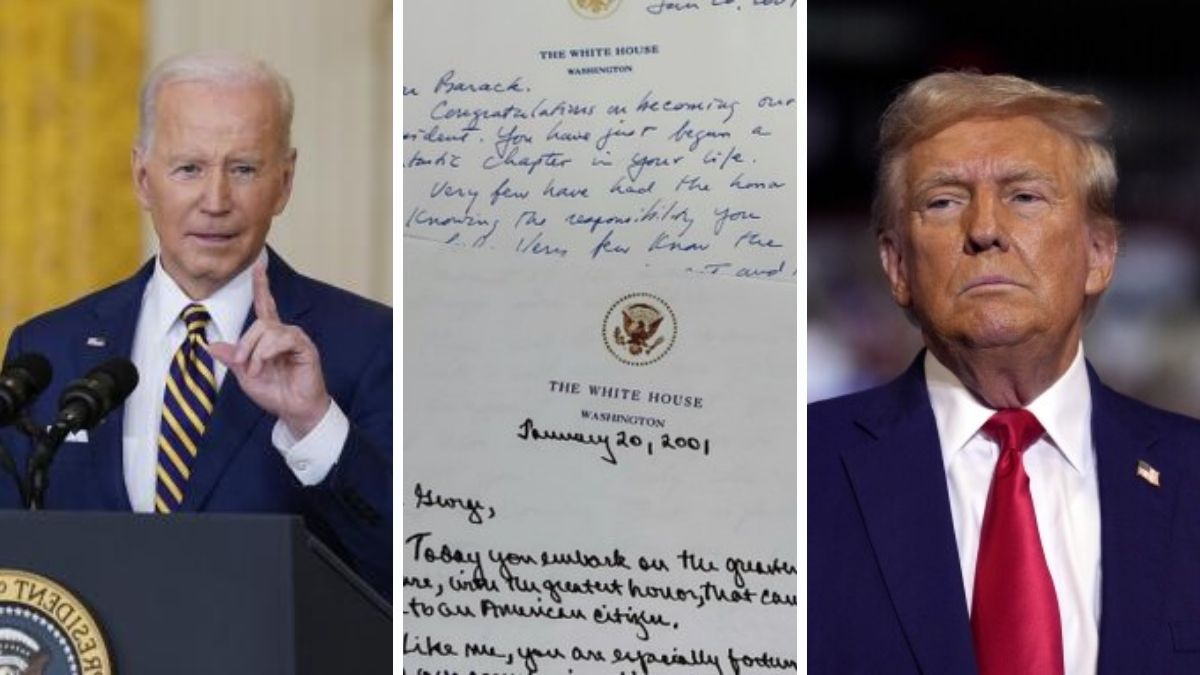 PRESIDENT O
Jan 20, 200
THE WHITE HOUSE
WASHINGTON
Barack.
Congratulations on becoming our
sident. You have just begun a
tastic chapter in your life.
Very few have had the honor
Knowing the responsibility you
Very few know the
and
THE WHITE HOUSE
WASHINGTON
January 20, 2001
George,
Today you embark on the greatest
ure, with the greatest honor, that can
to an American citizen.
Like me, you are especially fortun